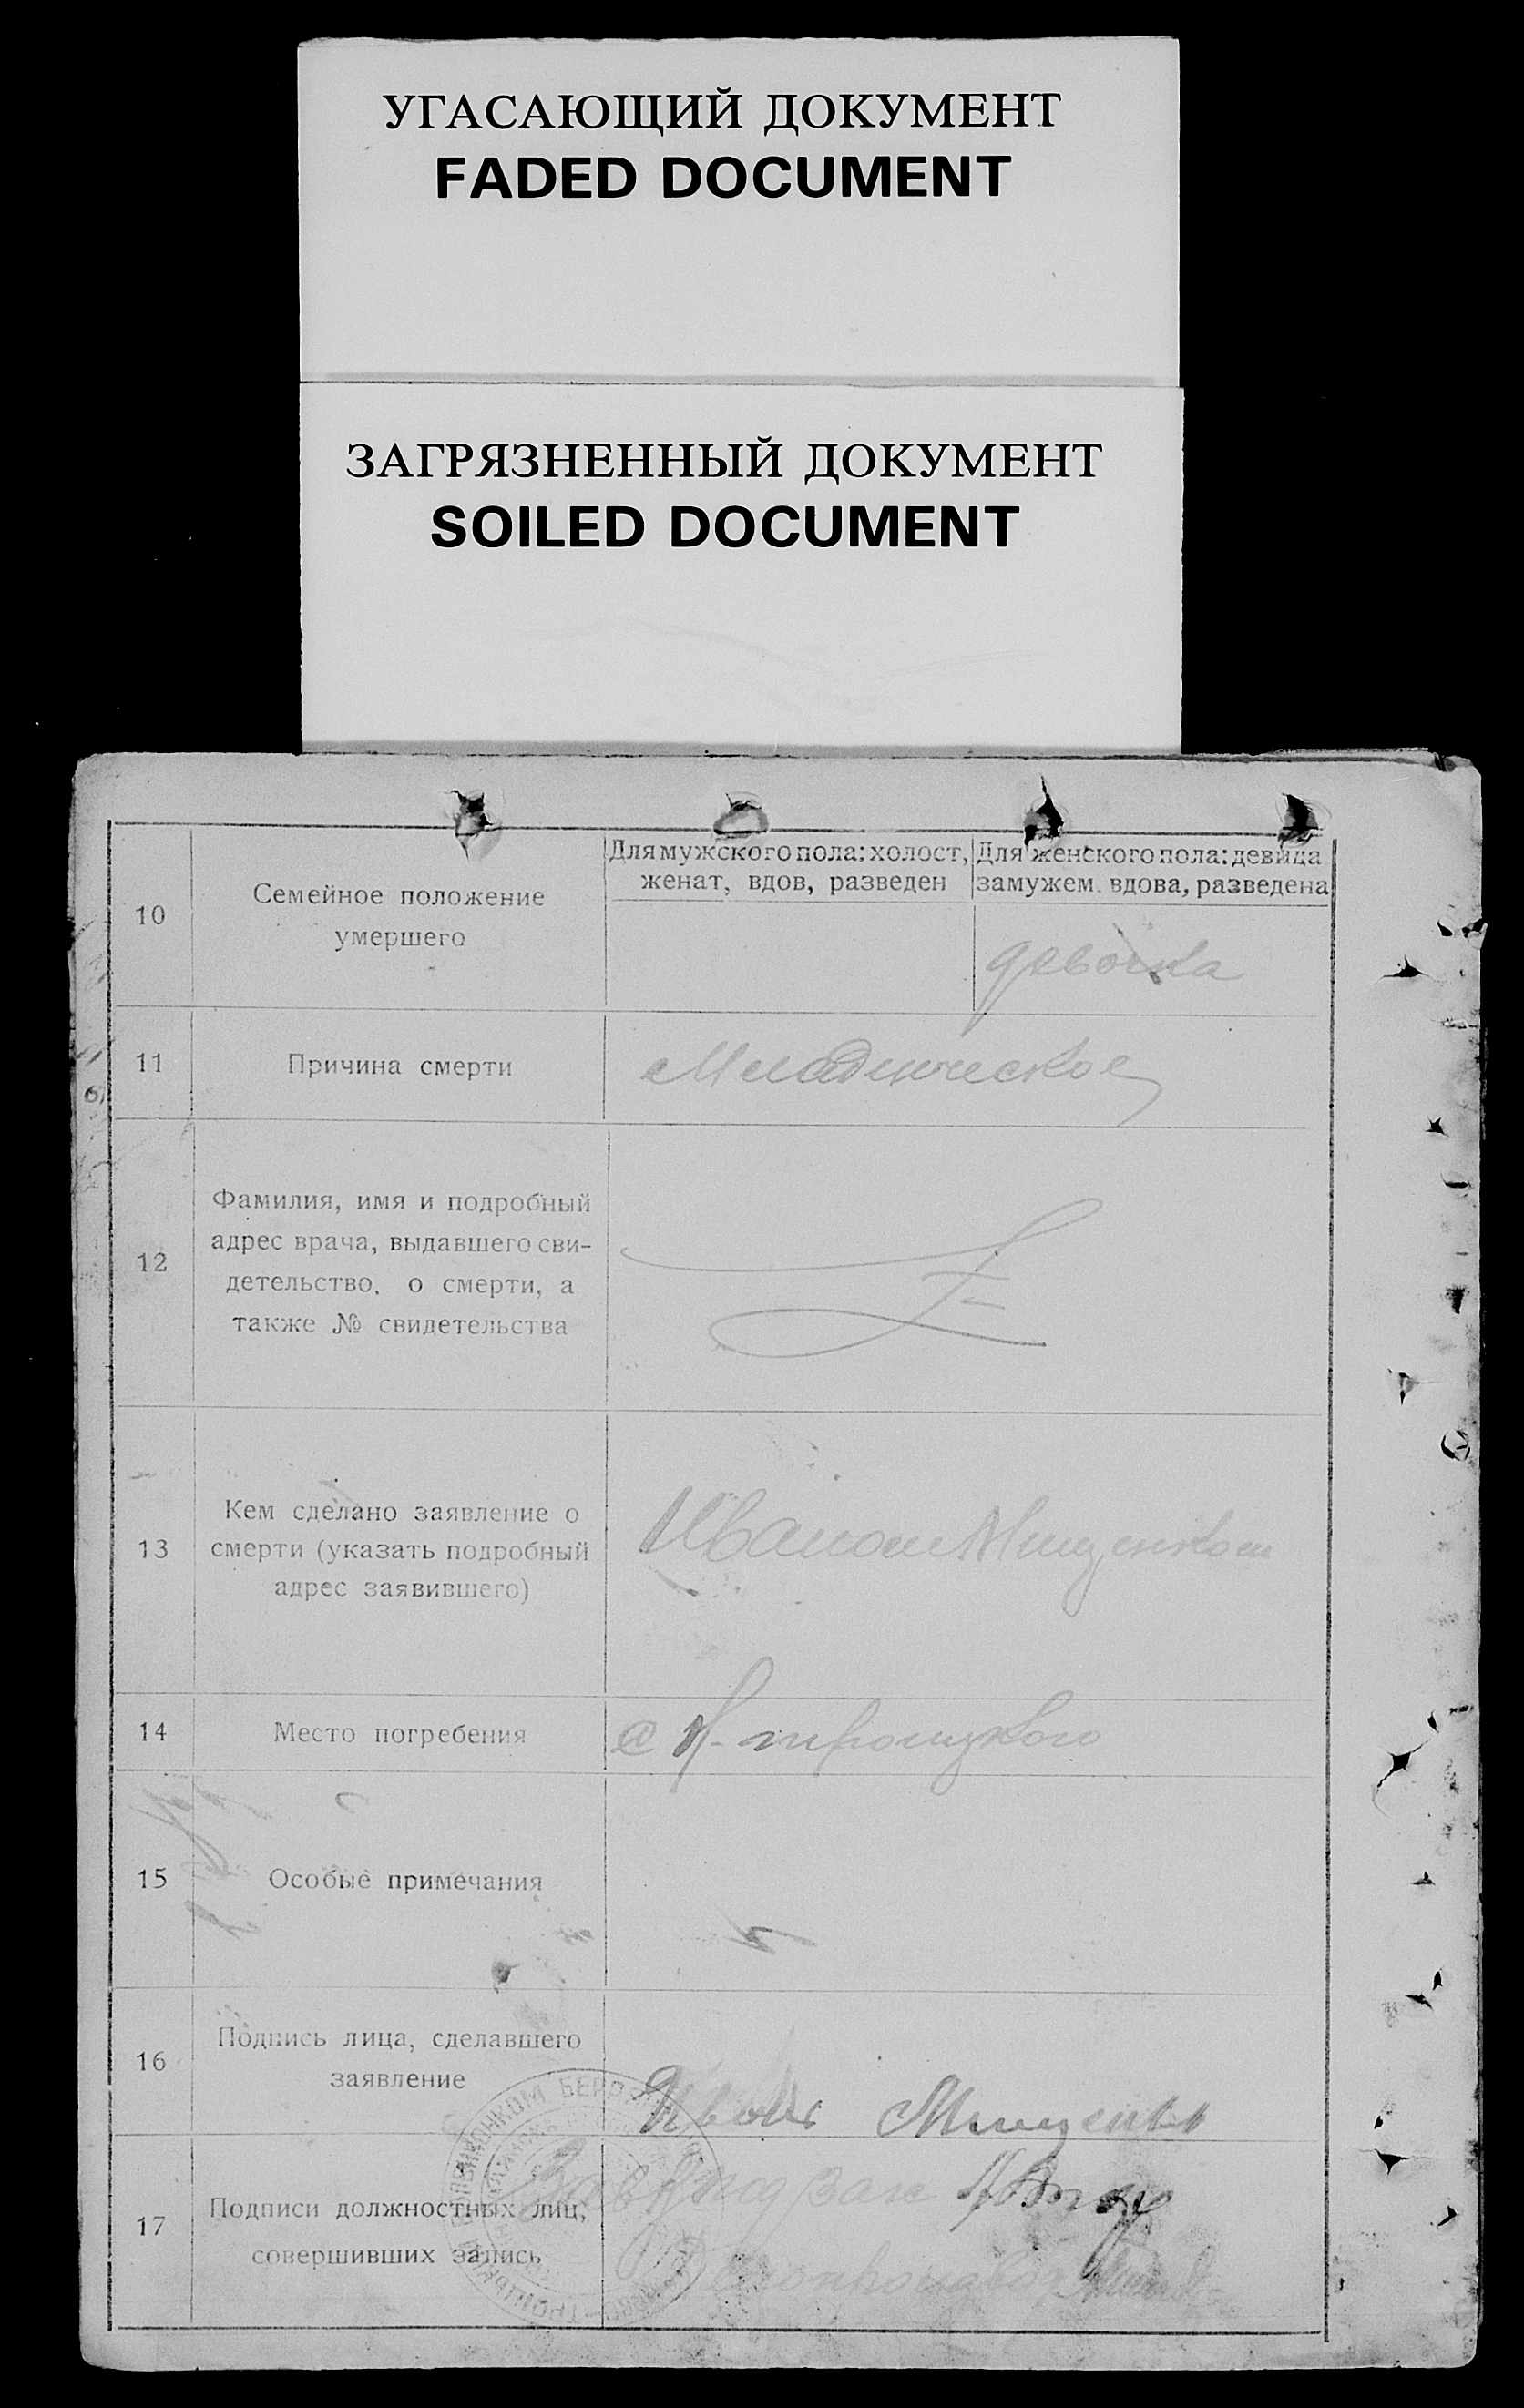 УГАСАЮЩИЙ ДОКУМЕНТ
FADED DOCUMENT
ЗАГРЯЗНЕННЫЙ ДОКУМЕНТ
SOILED DOCUMENT
10
Семейное положение
умершего
Для мужского пола: холост,
женат, вдов, разведен
Для женского пола: девица
замужем. вдова, разведена
девочка
11
Причина смерти
Младенческое
12
Фамилия, имя и подробный
адрес врача, выдавшего сви-
детельство, о смерти, а
также № свидетельства
13
Кем сделано заявление о
смерти (указать подробный
адрес заявившего)
Иваном Мищенком
14
Место погребения
с Н-троицкого
15
Особые примечания
16
Подпись лица, сделавшего
заявление
Иван Мищенко
17
Подписи должностных лиц,
совершивших запись